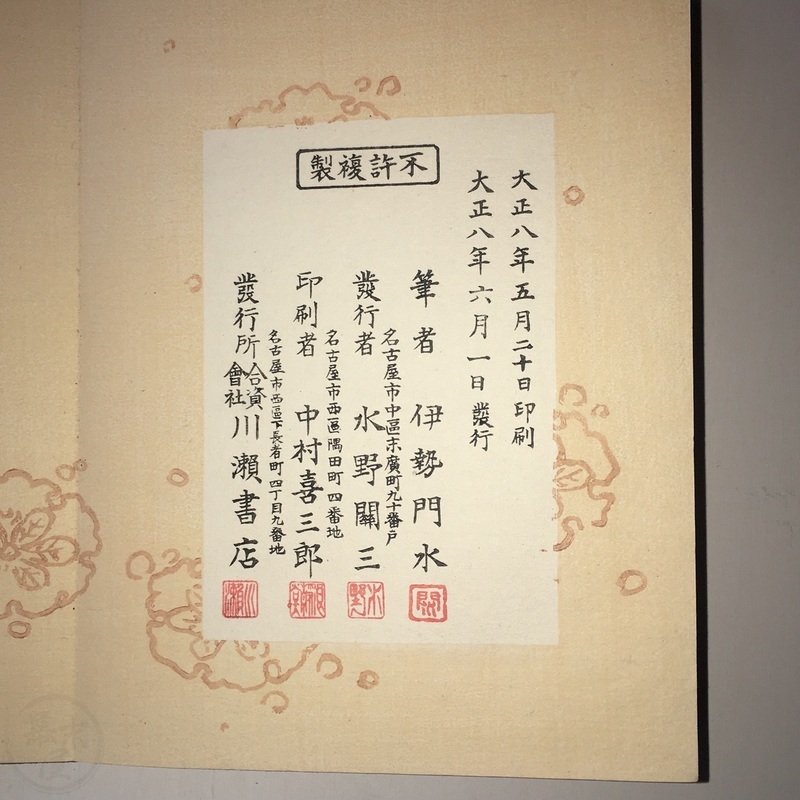 不許複製
大正八年五月二十日印刷
大正八年六月一日發行
筆者 伊勢門水
名古屋市中區末廣町九十番戸
發行者 水野關三
名古屋市西區隅田町四番地
印刷者 中村喜三郎
名古屋市西區下長者町四丁目九番地
發行所 合資會社 川瀨書店